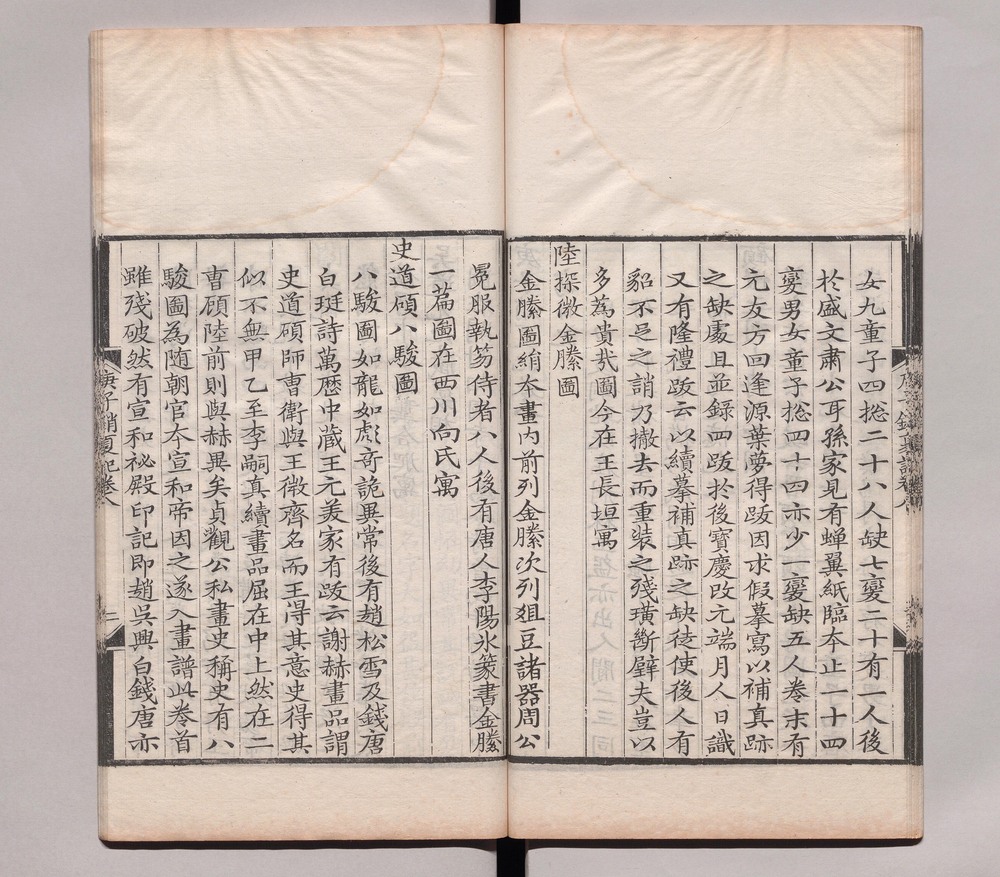 女九童子四揔二十八人缺七䙝二十有一人後
於盛文肅公耳孫家見有蟬翼紙臨本止二十四
䙝男女童子揔四十四亦少一䙝缺五人卷末有
元友方回逢源葉夢得跋因求假摹寫以補真跡
之缺處且並録四跋於後寶慶改元端月人日識
又有隆禮跋云以續摹補真跡之缺徒使後人有
貂不足之誚乃撤去而重装之殘璜斷璧夫豈以
多為貴㦲圖今在王長垣寓
陸探微金縢圖
金縢圖絹本畫内前列金縢次列俎豆諸器周公
冕服執笏侍者八人後有唐人李陽氷篆書金縢
一篇圖在西川向氏寓
史道碩八駿圖
八駿圖如龍如彪奇詭異常後有趙松雪及錢唐
白珽詩萬歷中藏王元美家有跋云謝赫畫品謂
史道碩師曹衛與王微齊名而王得其意史得其
似不無甲乙至李嗣真續畫品屈在中上然在二
曹顧陸前則與赫異矣貞觀公私畫史稱史有八
駿圖為隋朝官本宣和帝因之遂入畫譜此卷首
雖殘破然有宣和祕殿印記即趙吳興白錢唐亦
庚子銷夏記卷八